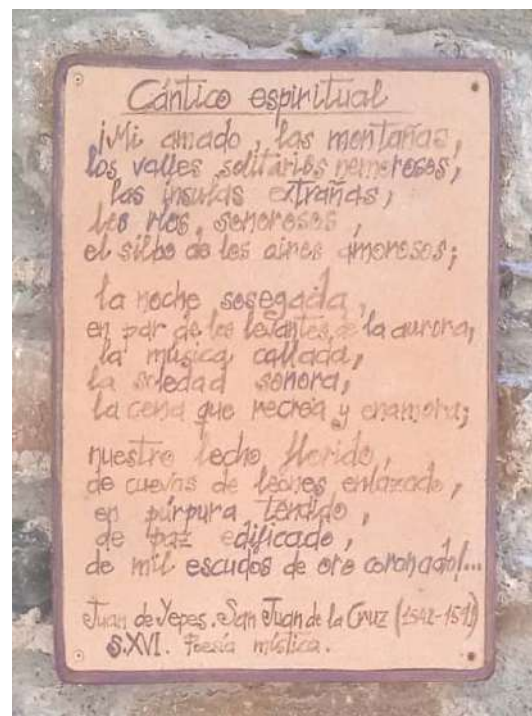 Cántico espiritual
¡Mi amado, las montañas,
los valles solitarios nemorosos,
las ínsulas extrañas,
los ríos sonorosos,
el silbo de los aires amorosos;
la noche sosegada,
en par de los levantes de la aurora,
la música callada,
la soledad sonora,
la cena que recrea y enamora;
nuestro lecho florido,
de cuevas de leones enlazado,
en púrpura tendido,
de paz edificado,
de mil escudos de oro coronado!...
Juan de Yepes. San Juan de la Cruz (1542-1591)
S.XVI. Poesía mística.